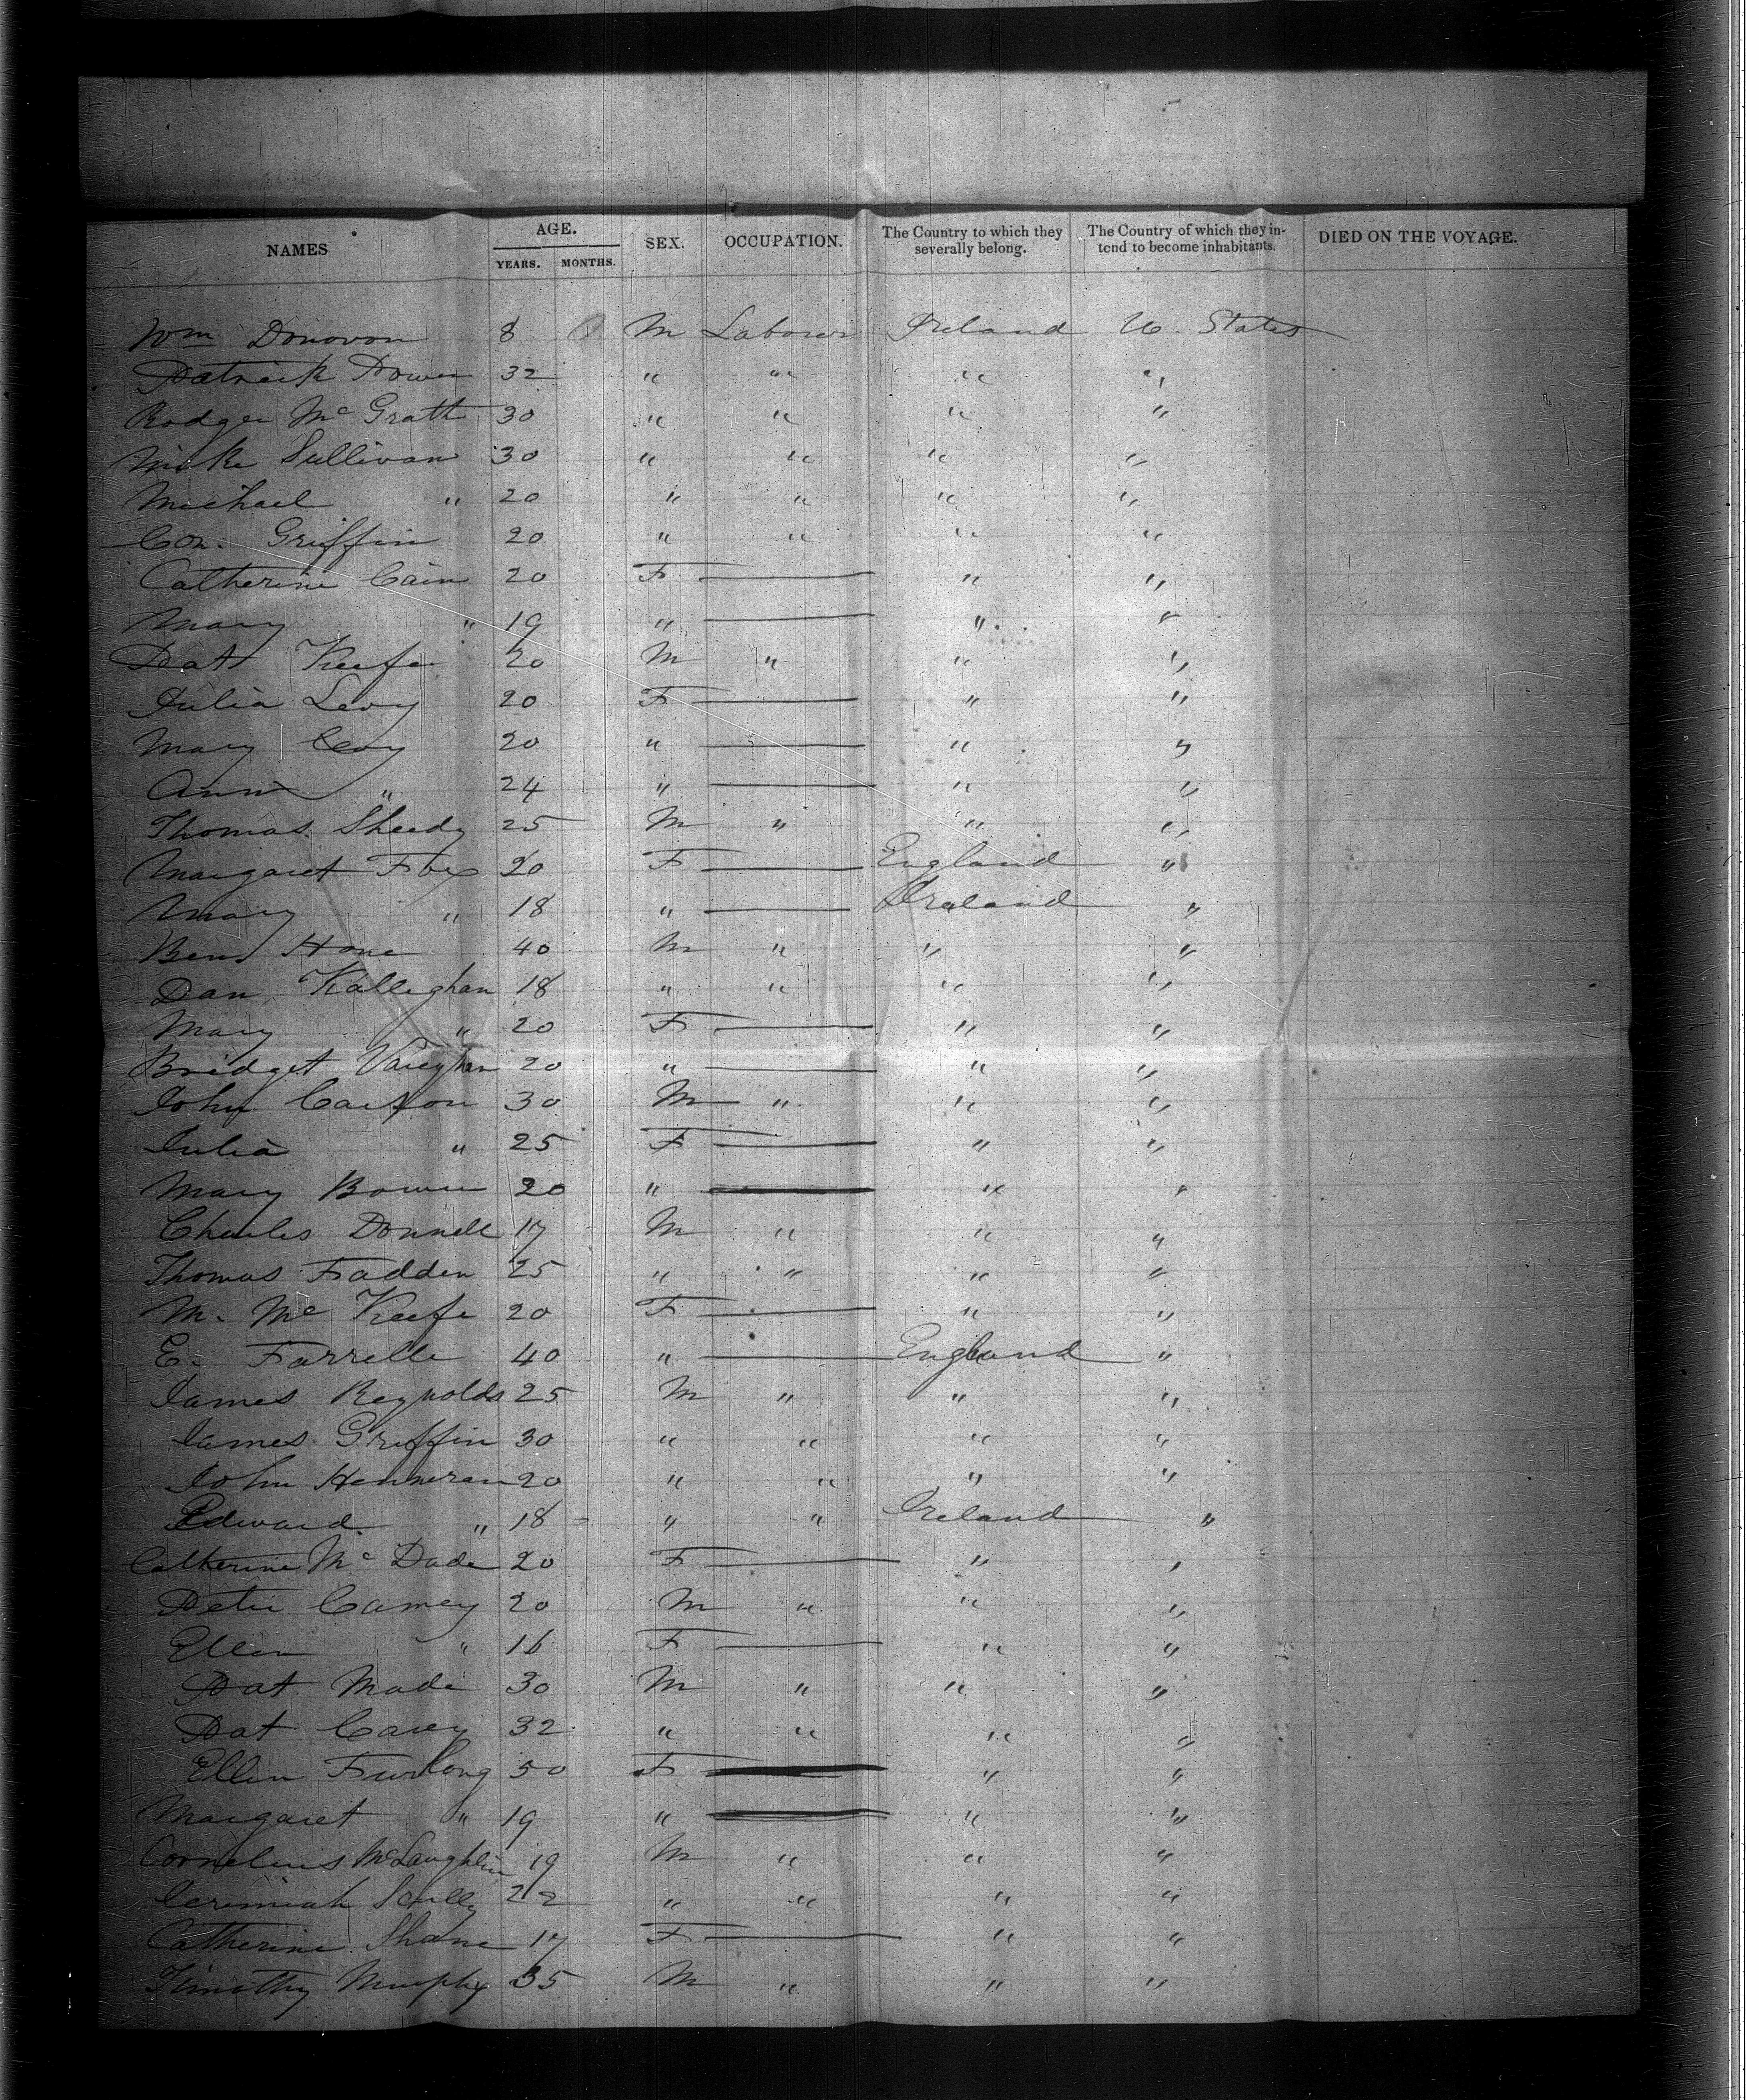 NAMES AGE. SEX. OCCUPATION. The Country to which they severally belong. The Country of which they intend to become inhabitants. DIED ON THE VOYAGE.
YEARS. MONTHS.
Wm Donovon 8 M Laborer Ireland U. States
Patrick Power 32 " " " "
Rodger Mc Grath 30 " " " "
Mike Sullivan 30 " " " "
Michael " 20 " " " "
Con. Griffin 20 " " " "
Catherine Cain 20 F — " "
Mary " 19 " — " "
Pat Keefe 20 M " " "
Julia Levy 20 F — " "
Mary Levy 20 " — " "
Ann " 24 " — " "
Thomas Sheedy 25 M " " "
Margaret Fox 20 F — England "
Mary " 18 " — Ireland "
Ben Hone 40 M " " "
Dan Kalleghan 18 " " " "
Mary " 20 F — " "
Bridget Vaughan 20 " — " "
John 30 M " " "
Julia " 25 F — " "
Mary Bowen 20 " — " "
Charles Donnell 17 M " " "
Thomas Fadden 25 " " " "
M. Mc Keefe 20 F — " "
E. Farrelle 40 " — England "
James Reynolds 25 M " " "
James Griffin 30 " " " "
John Henneran 20 " " " "
Edward " 18 " " Ireland "
Catherine Mc Dade 20 F — " "
Peter Carney 20 M " " "
Ellen " 16 F — " "
Pat Made 30 M " " "
Pat Carey 32 " " " "
Ellen Furlong 50 F — " "
Margaret " 19 " — " "
Cornelius McLaughlin 19 M " " "
Jeremiah Scully 22 " " " "
Catherine Shane 17 F — " "
Timothy Murphy 35 M " " "